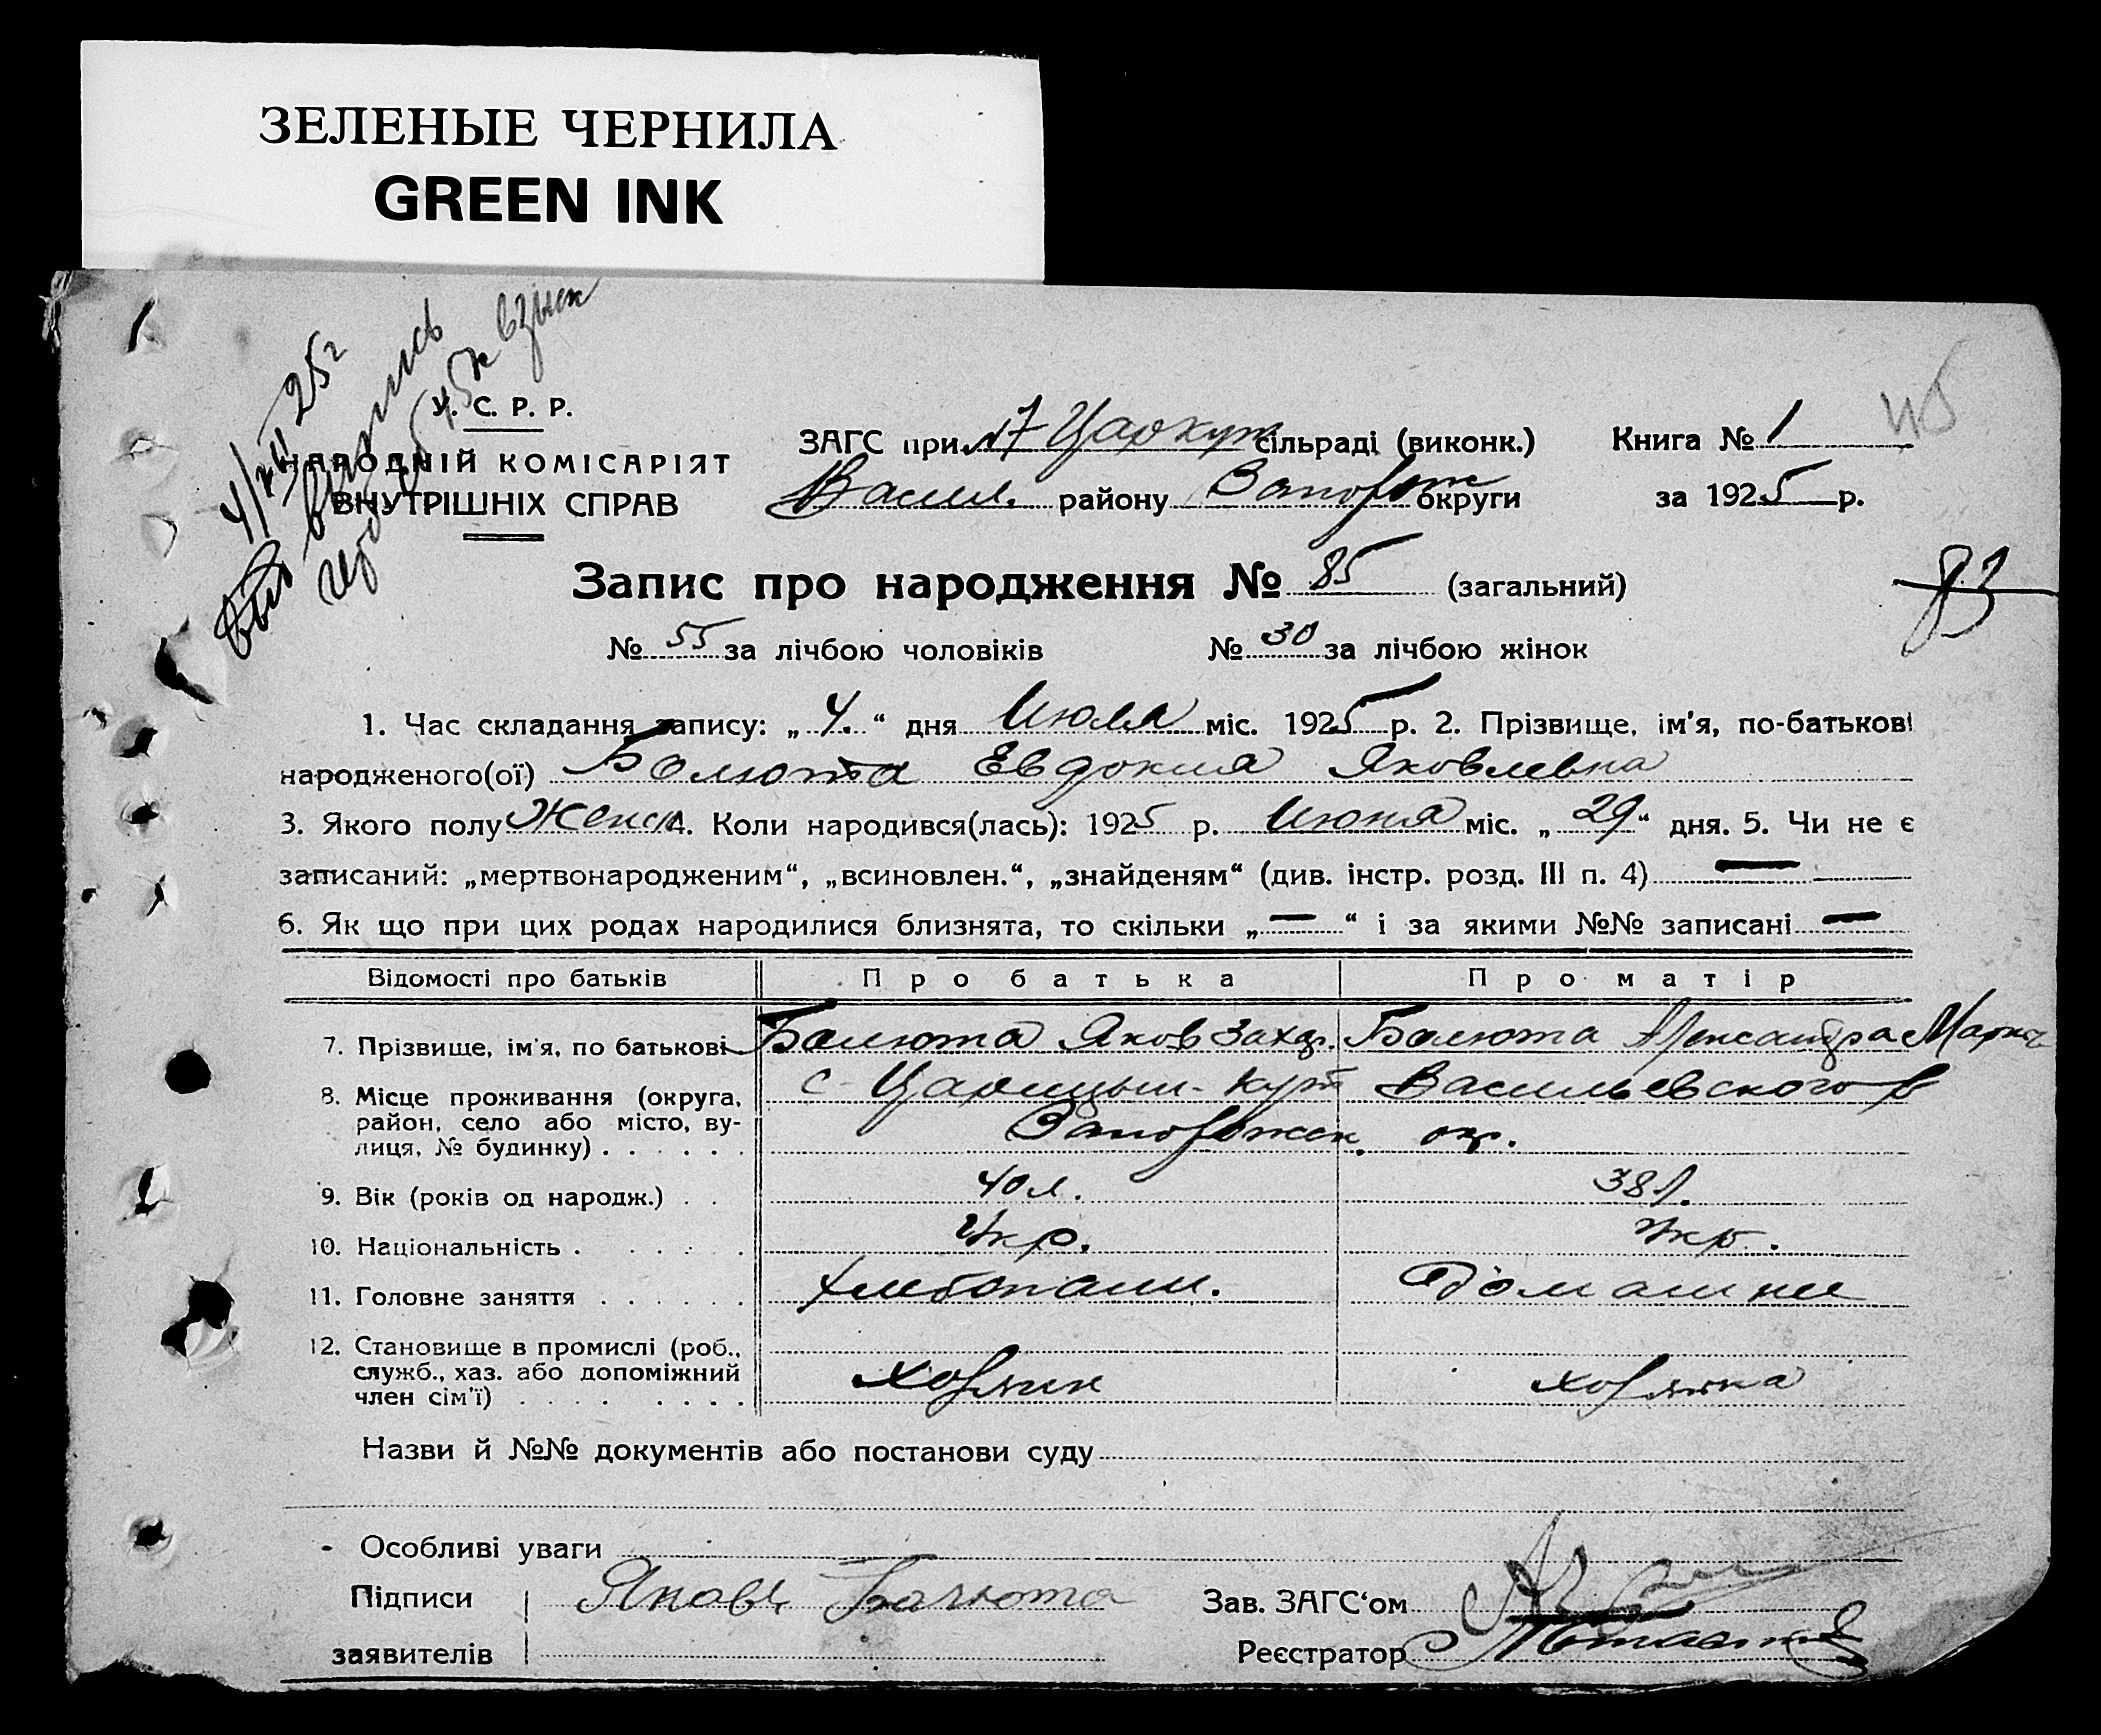 ЗЕЛЕНЫЕ ЧЕРНИЛА
GREEN INK
4/VII 25 г
выпись
взыск
45
У. С. Р. Р.
НАРОДНІЙ КОМІСАРІЯТ
ВНУТРІШНІХ СПРАВ
ЗАГС при Царкут сільраді (виконк.) Книга № 1
Васил. району Запорож округи за 1925 р.
83
Запис про народження № 85 (загальний)
№ 55 за лічбою чоловіків № 30 за лічбою жінок
1. Час складання запису: „ 4. “ дня Июля міс. 1925 р. 2. Прізвище, ім’я, по-батькові
народженого(ої) Балюта Евдокия Яковлевна
3. Якого полу Женск 4. Коли народився(лась): 1925 р. Июня міс. „ 29 “ дня. 5. Чи не є
записаний: „мертвонародженим“, „всиновлен.“, „знайденям“ (див. інстр. розд. III п. 4) —
6. Як що при цих родах народилися близнята, то скільки „ — “ і за якими №№ записані —
Відомості про батьків Про батька Про матір
7. Прізвище, ім’я, по батькові Балюта Яков Захар. Балюта Александра Марков
8. Місце проживання (округа, с. Царицын-Кут Васильевского р
район, село або місто, ву- Запорожск. окр.
лиця, № будинку) . . . . . .
9. Вік (років од народж.) . . 40 л. 38 л.
10. Національність . . . . . Укр. Укр.
11. Головне заняття . . . . . . хлебопаш. Домашнее
12. Становище в промислі (роб.,
служб., хаз. або допоміжний хозяин хозяйка
член сім’ї) . . . . . . . .
Назви й №№ документів або постанови суду
Особливі уваги
Підписи Яковъ Балюта Зав. ЗАГС‘ом
заявителів Реєстратор